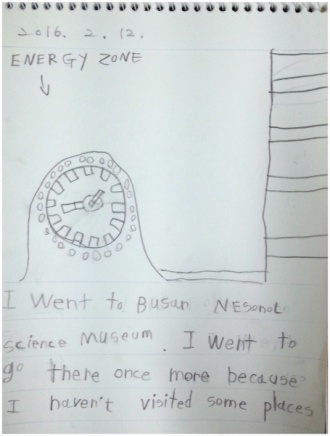 2016. 2. 12.
ENERGY ZONE
I Went to Busan NESonot
science Museum. I went to
go there once more because
I haven't visited some places